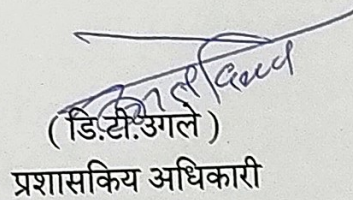 ( डि.टी.उगले )
प्रशासकिय अधिकारी